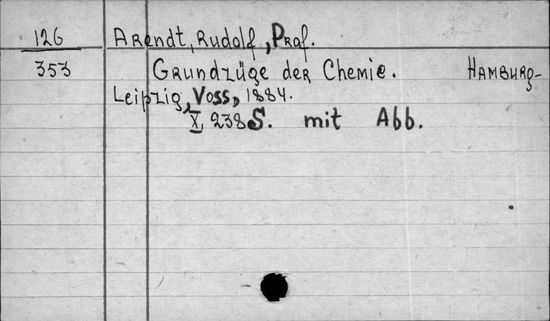 126 Arendt, Rudolf, Prof.
353 Grundzüge der Chemie. Hamburg-
Leipzig, Voss, 1884.
X, 238 S. mit Abb.